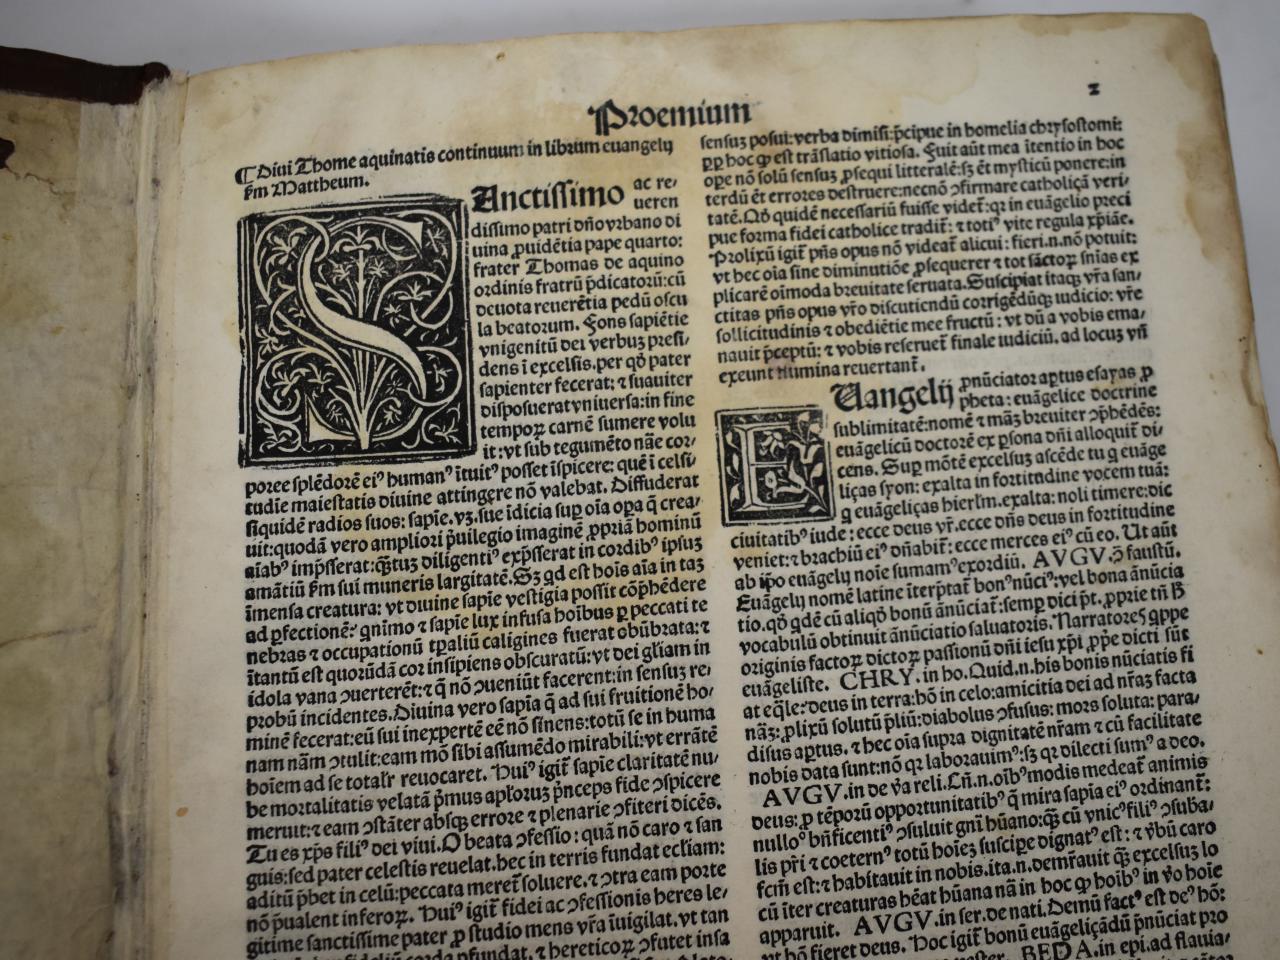 Proemium
2
¶ Diui Thome aquinatis continuum in librum euangelij
ẜm Mattheum.
SAnctissimo ac re/
ueren
dissimo patri dño vrbano di
uina ꝓuidẽtia pape quarto:
frater Thomas de aquino
ordinis fratrũ p̃dicatorũ: cũ
deuota reuerẽtia pedũ oscu
la beatorum. Fons sapiẽtie
vnigenitũ dei verbuꝫ presi/
dens ĩ excelsis. per qd̾ pater
sapienter fecerat: ⁊ suauiter
disposuerat vniuersa: in fine
tempoꝝ carnẽ sumere volu
it: vt sub tegumẽto nãe cor/
poree splẽdorẽ eiꝰ humanꝰ ĩtuitꝰ posset ĩspicere: quẽ ĩ celsi/
tudĩe maiestatis diuine attingere nõ valebat. Diffuderat
siquidẽ radios suos: sapie. vꝫ. sue ĩdicia suꝑ oĩa oꝑa q̃ crea/
uit: quodã vero ampliori p̃uilegio imaginẽ ꝓpriã hominũ
aĩabꝰ imp̃sserat: q̃ꝫtuꝫ diligentiꝰ exp̃sserat in cordibꝰ ipsuꝫ
amãtiũ ẜm sui muneris largitatẽ. Sꝫ qd est hoĩs aĩa in taꝫ
ĩmensa creatura: vt diuine sapie vestigia possit cõp̃hẽdere
ad ꝑfectionẽ: qnĩmo ⁊ sapie lux infusa hoĩbus ꝑ peccati te
nebras ⁊ occupationũ tp̃aliũ caligines fuerat obũbrata: ⁊
ĩtantũ est quorũdã cor insipiens obscuratũ: vt dei gl̃iam in
idola vana ꝯuerterẽt: ⁊ q̃ nõ ꝯueniũt facerent: in sensuꝫ re/
probũ incidentes. Diuina vero sapia q̃ ad sui fruitionẽ ho/
minẽ fecerat: eũ sui inexpertẽ eẽ nõ sinens: totũ se in huma
nam nãm ꝯtulit: eam mõ sibi assumẽdo mirabili: vt errãtẽ
hoĩem ad se totalr̃ reuocaret. Huiꝰ igit̃ sapie claritatẽ nu/
be mortalitatis velatã p̃mus apl̃oruꝫ p̃nceps fide ꝯspicere
meruit: ⁊ eam ꝯstãter absqꝫ errore ⁊ plenarie ꝯfiteri dicẽs.
Tu es xp̃s filiꝰ dei viui. O beata ꝯfessio: quã nõ caro ⁊ san
guis: sed pater celestis reuelat. hec in terris fundat eccl̃iam:
aditũ p̃bet in celũ: peccata meret̃ soluere. ⁊ ꝯtra eam porte
nõ p̃ualent inferoꝝ. Huiꝰ igit̃ fidei ac ꝯfessionis heres le/
gitime sanctissime pater ꝓ studio mens vr̃a ĩuigilat. vt tan
fidelĩũ corda ꝑfundat. ⁊ hereticoꝝ ꝯfutet insa
sensuꝫ posui: verba dimisi: p̃cipue in homelia chrysostomi:
ꝓꝑ hoc ꝙ est trãslatio vitiosa. Fuit aũt mea ĩtentio in hoc
oꝑe nõ solũ sensuꝫ ꝓsequi litteralẽ: sꝫ ẽt mysticũ ponere: in
terdũ ẽt errores destruere: necnõ ꝯfirmare catholicã veri/
tatẽ. Qd̾ quidẽ necessariũ fuisse videt̃: qꝛ in euãgelio preci
pue forma fidei catholice tradit̃: ⁊ totiꝰ vite regula xp̃iãe.
Prolixũ igit̃ pñs opus nõ videat̃ alicui: fieri. n. nõ potuit:
vt hec oĩa sine diminutiõe ꝓsequerer ⁊ tot sãctoꝝ sñias ex
plicarẽ oĩmoda breuitate seruata. Suscipiat itaqꝫ vr̃a san/
ctitas pñs opus vr̃o discutiendũ corrigẽdũqꝫ iudicio: vr̃e
sollicitudinis ⁊ obediẽtie mee fructũ: vt dũ a vobis ema/
nauit p̃ceptũ: ⁊ vobis reseruet̃ finale iudiciũ. ad locuꝫ vñ
exeunt flumina reuertant̃.
EUangelij ꝓnũciator aꝑtus esayas ꝓ
pheta: euãgelice doctrine
sublimitatẽ: nomẽ ⁊ mãꝫ breuiter ꝯp̃hẽdẽs:
euãgelicũ doctorẽ ex ꝑsona dñi alloquit̃ di/
cens. Suꝑ mõtẽ excelsuꝫ ascẽde tu q euãge
liças syon: exalta in fortitudine vocem tuã:
q euãgeliças hierl̃m. exalta: noli timere: dic
ciuitatibꝰ iude: ecce deus vr̃. ecce dñs deus in fortitudine
veniet: ⁊ brachiũ eiꝰ dñabit̃: ecce merces eiꝰ cũ eo. Ut aũt
ab ip̃o euãgelij noĩe sumamꝰ exordiũ. AVGV. ꝯ̃ faustũ.
Euãgelij nomẽ latine ĩterp̃tat̃ bonꝰ nũciꝰ: vel bona ãnũcia
tio. qd̾ qdẽ cũ aliqd̾ bonũ ãnũciat̃: semꝑ dici p̃t. ꝓprie tñ ꝧ
vocabulũ obtinuit ãnũciatio saluatoris. Narratores qppe
originis factoꝝ dictoꝝ passionũ dñi iesu xp̃i, ꝓp̃e dicti sũt
euãgeliste. CHRY. in ho. Quid. n. his bonis nũciatis fi
at eq̃le: deus in terra: hõ in celo: amicitia dei ad nr̃aꝫ facta
nãꝫ: ꝓlixũ solutũ p̃liũ: diabolus ꝯfusus: mors soluta: para/
disus aꝑtus. ⁊ hec oĩa supra dignitatẽ nr̃am ⁊ cũ facilitate
nobis data sunt: nõ qꝛ laborauimꝰ: sꝫ qꝛ dilecti sumꝰ a deo.
AVGV. in de v̾a reli. Cũ. n. oĩbꝰ modis medeat̃ animis
deus: ꝓ tẽporũ opportunitatibꝰ q̃ mira sapia eiꝰ ordinant̃:
nullo bñficentiꝰ ꝯsuluit gñi hũano: q̃ꝫ cũ vnicꝰ filiꝰ ꝯsuba/
lis pr̃i ⁊ coeternꝰ totũ hoĩeꝫ suscipe dignatꝰ est: ⁊ v̾bũ caro
fcm̃ est: ⁊ habitauit in nobis. ita. n. demr̃auit q̃ꝫ excelsuꝫ lo
cũ ĩter creaturas hẽat hũana nã in hoc ꝙ hoĩbꝰ in v̾o hoĩe
apparuit. AVGV. in ser. de nati. Demũ factꝰ est deꝰ hõ:
vt hõ fieret deus. Hoc igit̃ bonũ euãgeliçãdũ p̃nũciat pro
BEDA. in epi. ad flauia/